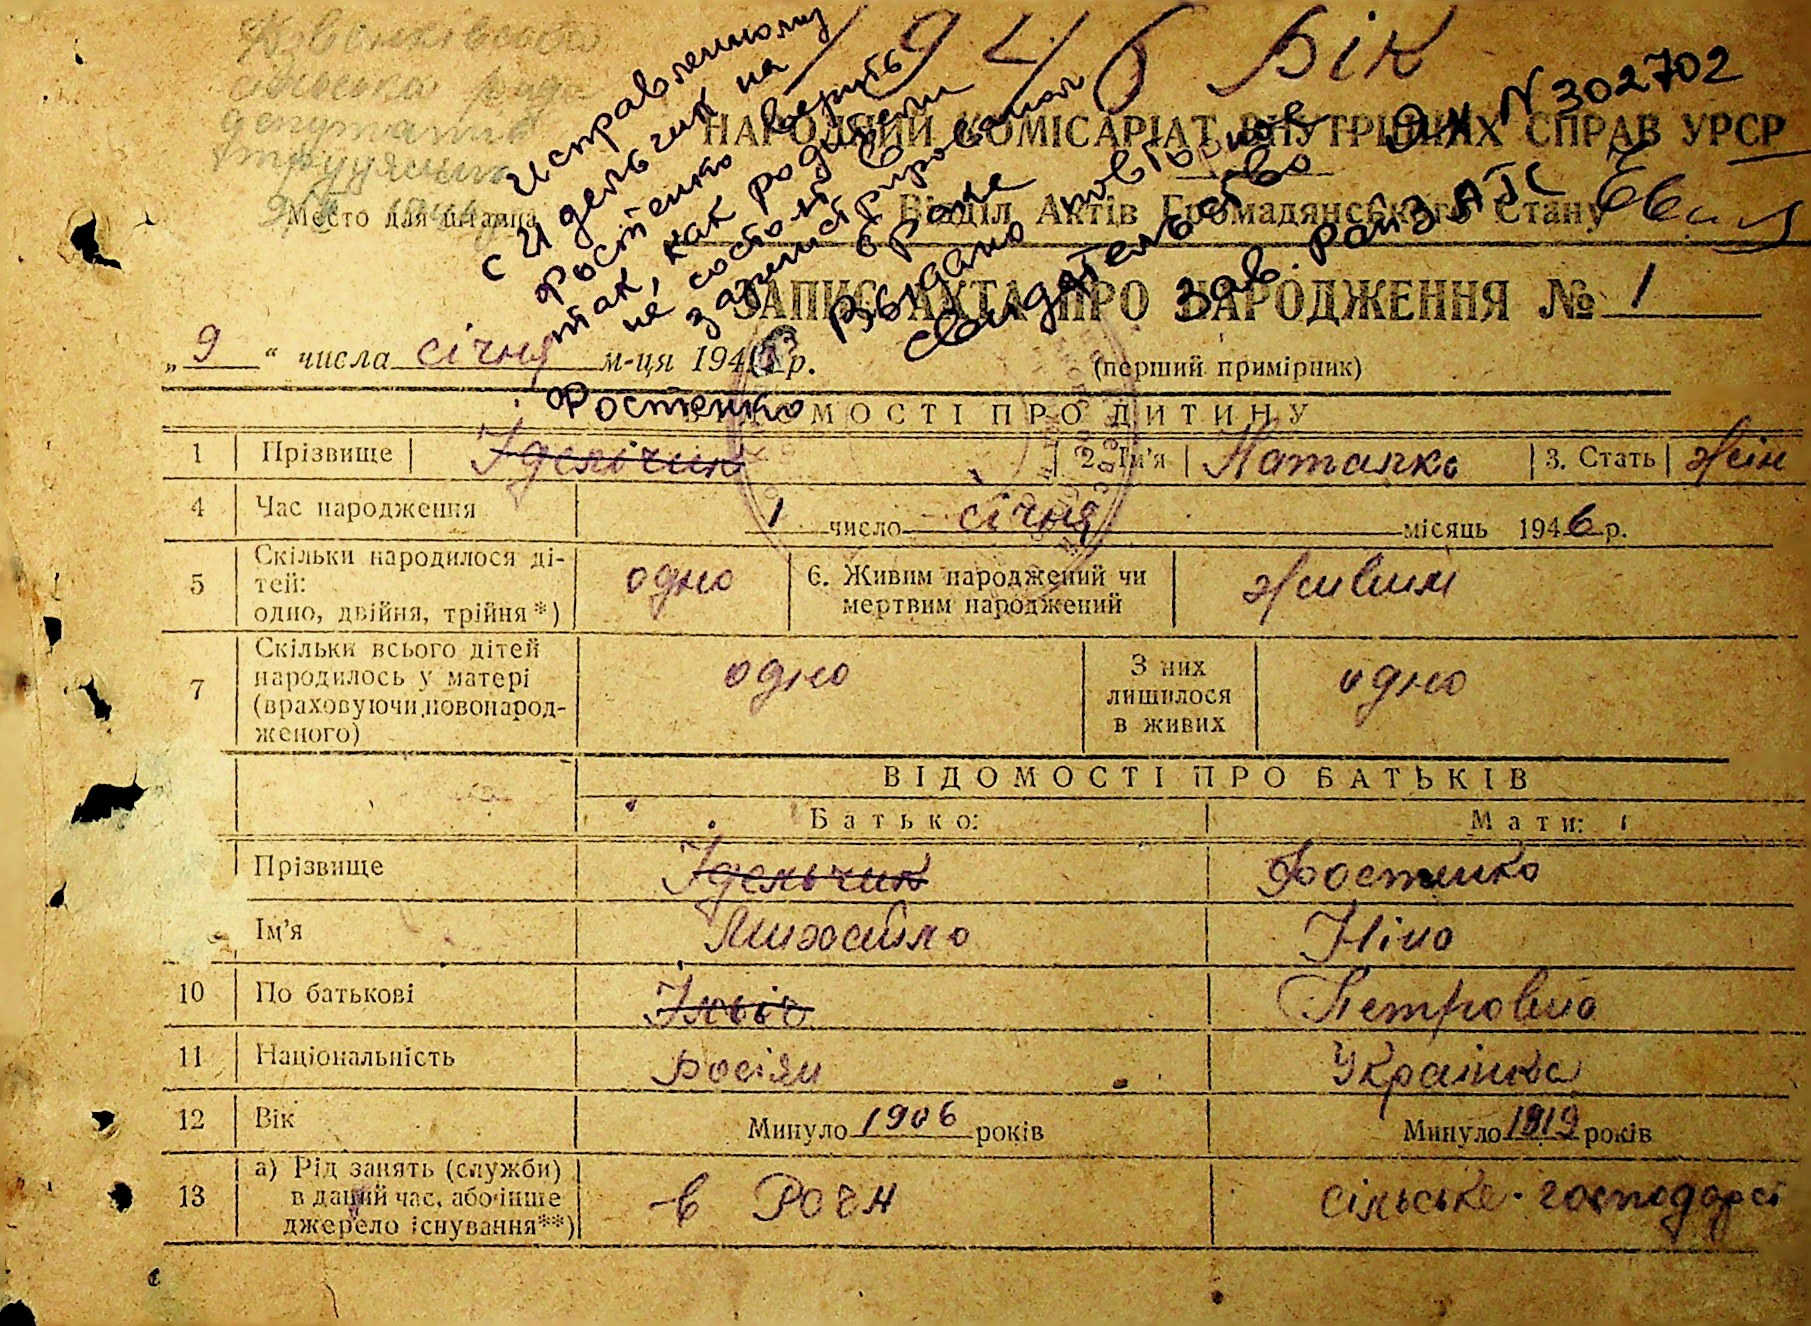 1946 Вік
НАРОДНИЙ КОМІСАРІАТ ВНУТРІШНІХ СПРАВ УРСР
Відділ Актів Громадянського Стану
Место для штампа
Исправленному
с Идельчик на
Фостенко верить
так, как родители
не состоят в
зарегистрированом
браке
Выдано повторное
свидетельство ЭЖ N 302702
Зав. райЗАГС
ЗАПИС АКТА ПРО НАРОДЖЕННЯ № 1
„ 9 “ числа січня м-ця 1946 р. (перший примірник)
Фостенко
ВІДОМОСТІ ПРО ДИТИНУ
1 Прізвище Ідельчик 2. Ім'я Наталка 3. Стать жін
4 Час народження 1 число січня місяць 1946 р.
5 Скільки народилося ді-
тей:
одно, двійня, трійня *) одно 6. Живим народжений чи
мертвим народжений живим
7 Скільки всього дітей
народилось у матері
(враховуючи новонарод-
женого) одно З них
лишилося
в живих одно
ВІДОМОСТІ ПРО БАТЬКІВ
Батько: Мати:
Прізвище Ідельчик Фостенко
Ім'я Михайло Ніна
10 По батькові Ільіч Петровна
11 Національність Росіян Українка
12 Вік Минуло 1906 років Минуло 1919 років
13 а) Рід занять (служби)
в даний час, або інше
джерело існування**) в РОЧА сільське господарст